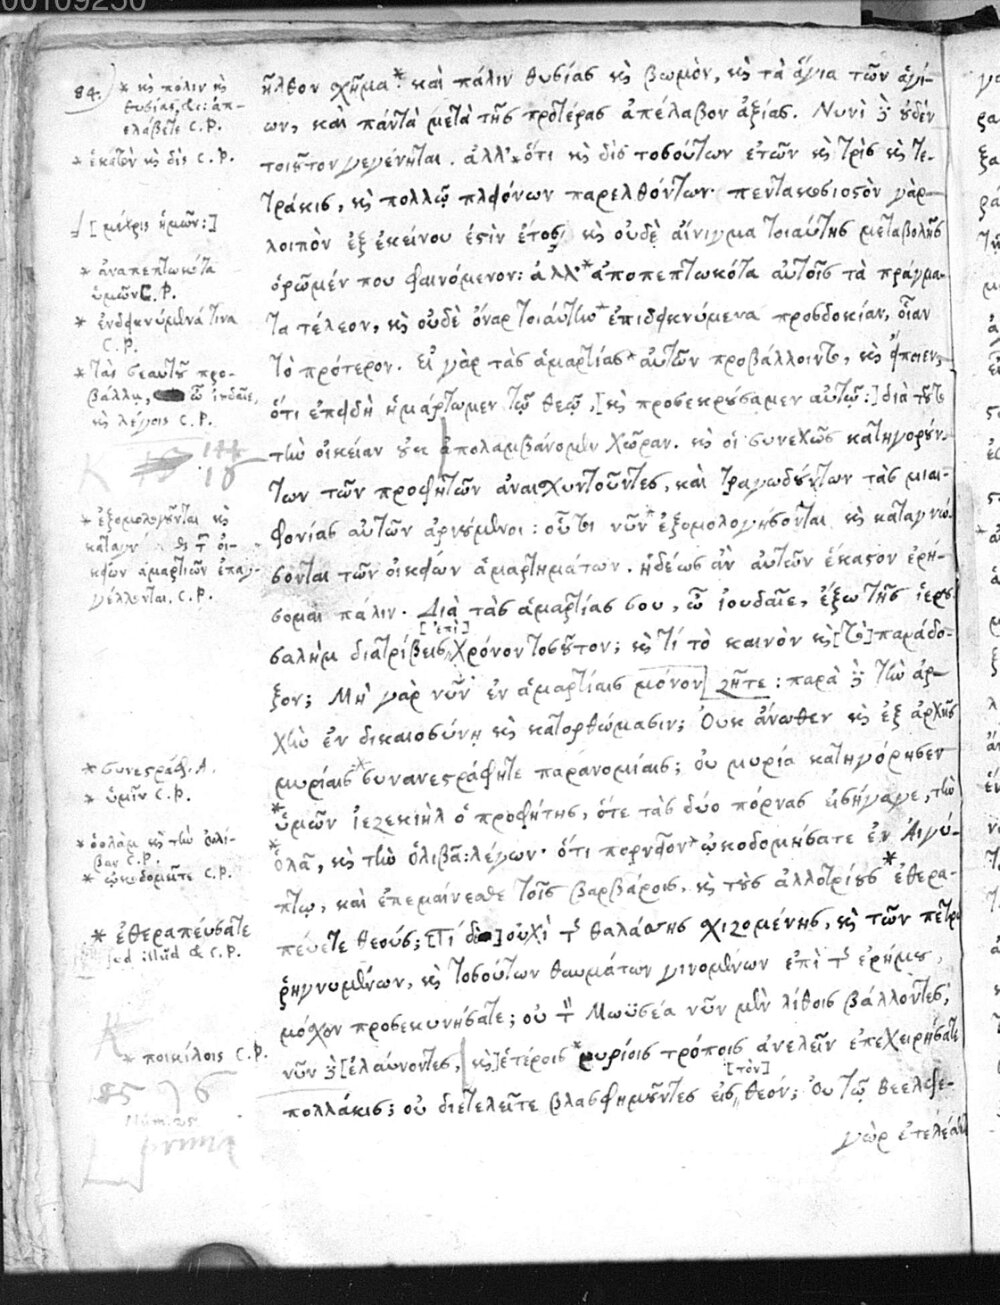 00109250
84.
* κ̀ς πόλιν κ̀ς
θυσίας, &c: ἀπ-
ελάβετε C.P.
* ἑκατὸν κ̀ς δὶς C.P.
[μέχρις ἡμῶν:]
* ἀναπεπτωκότα
ὑμῶν C.P.
* ἐνδεικνύμενά τινα
C.P.
* τὰς σεαυτοῦ προ-
βάλλῃ, ὦ ἰουδαῖε,
κ̀ς λέγοις C.P.
* ἐξομολογοῦνται κ̀ς
οἰ-
κείων ἁμαρτιῶν ἐπαγ-
γέλλονται, C.P.
* συνεστράφ. A.
* ὑμῖν C.P.
* ὀολὰμ κ̀ς τὴν ὀολί-
βαν C.P.
* ᾠκοδομεῖτε C.P.
* ἐθεραπεύσατε
sed illud & C.P.
* ποικίλοις C.P.
85 76
Num. 25.
ἦλθον σχῆμα* καὶ πάλιν θυσίας κ̀ς βωμὸν, κ̀ς τὰ ἅγια τῶν ἁγί-
ων, καὶ πάντα μετὰ τῆς προτέρας ἀπέλαβον ἀξίας. Νυνὶ δὲ οὐδὲν
τοιοῦτον γεγένηται. ἀλλ'* ὅτι κ̀ς δὶς τοσούτων ἐτῶν κ̀ς τρὶς κ̀ς τε-
τράκις, κ̀ς πολλῷ πλειόνων παρελθόντων· πεντακοσιοστὸν γὰρ
λοιπὸν ἐξ ἐκείνου ἐστὶν ἔτος, κ̀ς οὐδὲ αἴνιγμα τοιαύτης μεταβολῆς
ὁρῶμέν που φαινόμενον: ἀλλ'* ἀποπεπτωκότα αὐτοῖς τὰ πράγμα-
τα τέλεον, κ̀ς οὐδὲ ὄναρ τοιαύτην* ἐπιδεικνύμενα προσδοκίαν, οἵαν
τὸ πρότερον. Εἰ γὰρ τὰς ἁμαρτίας* αὐτῶν προβάλλοιντο, κ̀ς εἴποιεν,
ὅτι ἐπειδὴ ἡμάρτομεν τῷ θεῷ, [κ̀ς προσεκρούσαμεν αὐτῷ:] διὰ τοῦτο
τὴν οἰκείαν οὐκ ἀπολαμβάνομεν χώραν. κ̀ς οἱ συνεχῶς κατηγορούν-
των τῶν προφητῶν ἀναισχυντοῦντες, καὶ τραγῳδούντων τὰς μιαι-
φονίας αὐτῶν ἀρνούμενοι: οὗτοι νῦν* ἐξομολογήσονται κ̀ς καταγνώ-
σονται τῶν οἰκείων ἁμαρτημάτων. ἡδέως ἂν αὐτῶν ἕκαστον ἐρή-
σομαι πάλιν. Διὰ τὰς ἁμαρτίας σου, ὦ ἰουδαῖε, ἔξω τῆς ἱερου-
[ἐπὶ]
σαλὴμ διατρίβεις χρόνον τοσοῦτον; κ̀ς τί τὸ καινὸν κ̀ς [τὸ] παράδο-
ξον; Μὴ γὰρ νῦν ἐν ἁμαρτίαις μόνον] ζῆτε: παρὰ δὲ τὴν ἀρ-
χὴν ἐν δικαιοσύνῃ κ̀ς κατορθώμασιν; Οὐκ ἄνωθεν κ̀ς ἐξ ἀρχῆς
μυρίαις* συνανεστράφητε παρανομίαις; οὐ μυρία κατηγόρησεν
*ὑμῶν ἰεζεκιὴλ ὁ προφήτης, ὅτε τὰς δύο πόρνας εἰσήγαγε, τὴν
*ὀλᾶ, κ̀ς τὴν ὀλιβᾶ: λέγων· ὅτι πορνεῖον* ᾠκοδομήσατε ἐν Αἰγύ-
πτῳ, καὶ ἐπεμαίνεσθε τοῖς βαρβάροις, κ̀ς τοὺς ἀλλοτρίους* ἐθερα-
πεύετε θεούς; [Τί δὲ] οὐχὶ τῆς θαλάσσης σχιζομένης, κ̀ς τῶν πετρῶ
ῥηγνυμένων, κ̀ς τοσούτων θαυμάτων γινομένων ἐπὶ τῆς ἐρήμου,
μόσχον προσεκυνήσατε; οὐ τὸν Μωϋσέα νῦν μὲν λίθοις βάλλοντες,
νῦν δὲ [ἐλαύνοντες, κ̀ς] ἑτέροις* μυρίοις τρόποις ἀνελεῖν ἐπεχειρήσατε
[τὸν]
πολλάκις; οὐ διετελεῖτε βλασφημοῦντες εἰς θεόν; Οὐ τῷ Βεελφε-
γὼρ ἐτελέσθ